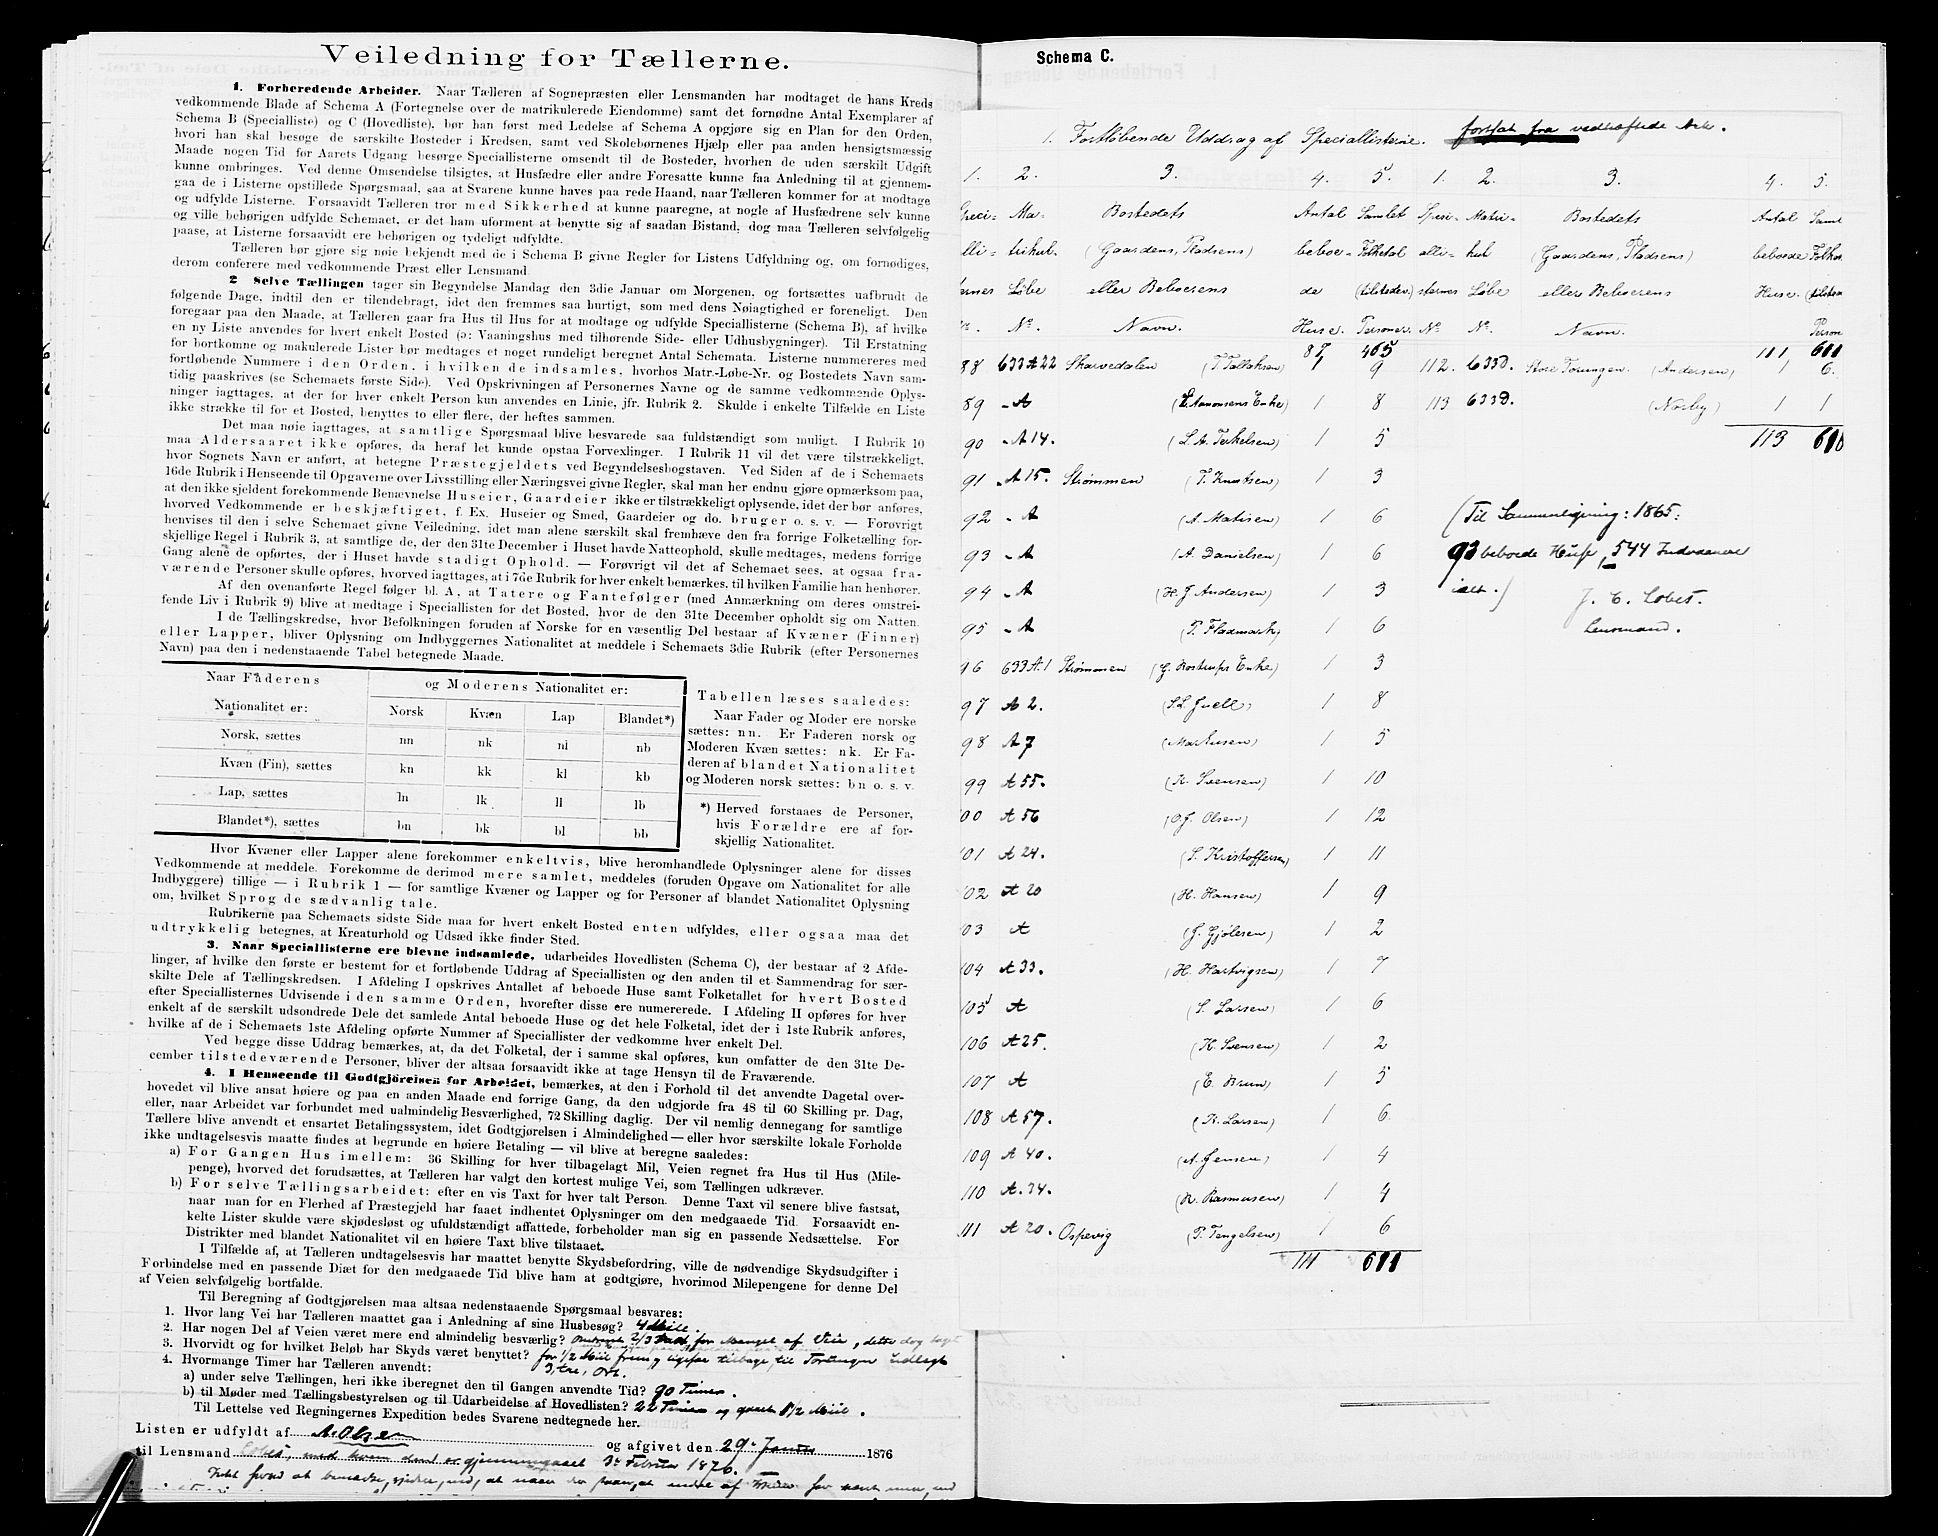 Veiledning for Tællerne.
1. Forberedende Arbeider. Naar Tælleren af Sognepræsten eller Lensmanden har modtaget de hans Kreds
vedkommende Blade af Schema A (Fortegnelse over de matrikulerede Eiendomme) samt det fornødne Antal Exemplarer af
Schema B (Specialliste) og C (Hovedliste), bør han først med Ledelse af Schema A opgjøre sig en Plan for den Orden,
hvori han skal besøge de særskilte Bosteder i Kredsen, samt ved Skolebørnenes Hjælp eller paa anden hensigtsmæssig
Maade nogen Tid før Aarets Udgang besørge Speciallisterne omsendt til de Bosteder, hvorhen de uden særskilt Udgift
kunne ombringes. Ved denne Omsendelse tilsigtes, at Husfædre eller andre Foresatte kunne faa Anledning til at gjennem-
gaa de i Listerne opstillede Spørgsmaal, saa at Svarene kunne haves paa rede Haand, naar Tælleren kommer for at modtage
og udfylde Listerne. Forsaavidt Tælleren tror med Sikkerhed at kunne paaregne, at nogle af Husfædrene selv kunne
og ville behørigen udfylde Schemaet, er det ham uforment at benytte sig af saadan Bistand; dog maa Tælleren selvfølgelig
paase, at Listerne forsaavidt ere behørigen og tydeligt udfyldte.
Tælleren bør gjøre sig nøie bekjendt med de i Schema B givne Regler for Listens Udfyldning og, om fornødiges,
derom conferere med vedkommende Præst eller Lensmand.
2 Selve Tællingen tager sin Begyndelse Mandag den 3die Januar om Morgenen, og fortsættes uafbrudt de
følgende Dage, indtil den er tilendebragt, idet den fremmes saa hurtigt, som med dens Nøiagtighed er foreneligt. Den
foregaar paa den Maade, at Tælleren gaar fra Hus til Hus for at modtage og udfylde Speciallisterne (Schema B), af hvilke
en ny Liste anvendes for hvert enkelt Bosted (ɔ: Vaaningshus med tilhørende Side- eller Udhusbygninger). Til Erstatning
for bortkomne og makulerede Lister bør medtages et noget rundeligt beregnet Antal Schemata. Listerne nummereres med
fortløbende Nummere i den Orden, i hvilken de indsamles, hvorhos Matr.-Løbe-Nr. og Bostedets Navn sam-
tidig paaskrives (se Schemaets første Side). Ved Opskrivningen af Personernes Navne og de samme vedkommende Oplys-
ninger iagttages, at der for hver enkelt Person kun anvendes en Linie, jfr. Rubrik 2. Skulde i enkelte Tilfælde en Liste
ikke strække til for et Bosted, benyttes to eller flere, der heftes sammen.
Det maa nøie iagttages, at samtlige Spørgsmaal blive besvarede saa fuldstændigt som muligt. I Rubrik 10
maa Aldersaaret ikke opføres, da heraf let kunde opstaa Forvexlinger. I Rubrik 11 vil det være tilstrækkeligt,
hvor Sognets Navn er anført, at betegne Præstegjeldets ved Begyndelsesbogstaven. Ved Siden af de i Schemaets
16de Rubrik i Henseende til Opgaverne over Livsstilling eller Næringsvei givne Regler, skal man her endnu gjøre opmærksom paa,
at den ikke sjeldent forekommende Benævnelse Huseier, Gaardeier ikke er tilstrækkeligt oplysende, idet der bør anføres,
hvorved Vedkommende er beskjæftiget, f. Ex. Huseier og Smed, Gaardeier og do. bruger o. s. v. — Forøvrigt
henvises til den i selve Schemaet givne Veiledning, idet man alene særskilt skal fremhæve den fra forrige Folketælling for-
skjellige Regel i Rubrik 3, at samtlige de, der den 31te December i Huset havde Natteophold, skulle medtages, medens forrige
Gang alene de opførtes, der i Huset havde stadigt Ophold. — Forøvrigt vil det af Schemaet sees, at ogsaa fra-
værende Personer skulle opføres, hvorved iagttages, at i 7de Rubrik for hver enkelt bemærkes, til hvilken Familie han henhører.
Af den ovenanførte Regel følger bl. A, at Tatere og Fantefølger (med Anmærkning om deres omstrei-
fende Liv i Rubrik 9) blive at medtage i Speciallisten for det Bosted, hvor de den 31te December opholdt sig om Natten.
I de Tællingskredse, hvor Befolkningen foruden af Norske for en væsentlig Del bestaar af Kvæner (Finner)
eller Lapper, bliver Oplysning om Indbyggernes Nationalitet at meddele i Schemaets 3die Rubrik (efter Personernes
Navn) paa den i nedenstaaende Tabel betegnede Maade.
Naar Faderens og Moderens Nationalitet er:
Nationalitet er: Norsk Kvæn Lap Blandet*)
Norsk, sættes nn nk nl nb
Kvæn (Fin), sættes kn kk kl kb
Lap, sættes ln lk ll lb
Blandet*), sættes bn bk bl bb
Tabellen læses saaledes:
Naar Fader og Moder ere norske
sættes: nn. Er Faderen norsk og
Moderen Kvæn sættes: nk. Er Fa-
deren af blandet Nationalitet
og Moderen norsk sættes: bn o. s. v.
*) Herved forstaaes de Personer,
hvis Forældre ere af for-
skjellig Nationalitet.
Hvor Kvæner eller Lapper alene forekommer enkeltvis, blive heromhandlede Oplysninger alene for disses
Vedkommende at meddele. Forekomme de derimod mere samlet, meddeles (foruden Opgave om Nationalitet for alle
Indbyggere) tillige — i Rubrik 1 — for samtlige Kvæner og Lapper og for Personer af blandet Nationalitet Oplysning
om, hvilket Sprog de sædvanlig tale.
Rubrikerne paa Schemaets sidste Side maa for hvert enkelt Bosted enten udfyldes, eller ogsaa maa det
udtrykkelig betegnes, at Kreaturhold og Udsæd ikke finder Sted.
3. Naar Speciallisterne ere blevne indsamlede, udarbeides Hovedlisten (Schema C), der bestaar af 2 Afde-
linger, af hvilke den første er bestemt for et fortløbende Uddrag af Speciallisten og den anden til et Sammendrag for sær-
skilte Dele af Tællingskredsen. I Afdeling I opskrives Antallet af beboede Huse samt Folketallet for hvert Bosted
efter Speciallisternes Udvisende i den samme Orden, hvorefter disse ere numererede. I Afdeling II opføres for hver
enkelt af de særskilt udsondrede Dele det samlede Antal beboede Huse og det hele Folketal, idet der i 1ste Rubrik anføres,
hvilke af de i Schemaets 1ste Afdeling opførte Nummer af Speciallister der vedkomme hver enkelt Del.
Ved begge disse Uddrag bemærkes, at, da det Folketal, der i samme skal opføres, kun omfatter de den 31te De-
cember tilstedeværende Personer, bliver der altsaa forsaavidt ikke at tage Hensyn til de Fraværende.
4. I Henseende til Godtgjörelsen for Arbeidet, bemærkes, at den i Forhold til det anvendte Dagetal over-
hovedet vil blive ansat høiere og paa en anden Maade end forrige Gang, da den udgjorde fra 48 til 60 Skilling pr. Dag,
eller, naar Arbeidet var forbundet med ualmindelig Besværlighed, 72 Skilling daglig. Der vil nemlig dennegang for samtlige
Tællere blive anvendt et ensartet Betalingssystem, idet Godtgjørelsen i Almindelighed — eller hvor særskilte lokale Forholde
ikke undtagelsesvis maatte findes at begrunde en høiere Betaling — vil blive at beregne saaledes:
a) For Gangen Hus imellem: 36 Skilling for hver tilbagelagt Mil, Veien regnet fra Hus til Hus (Mile-
penge), hvorved det forudsættes, at Tælleren har valgt den kortest mulige Vei, som Tællingen udkræver.
b) For selve Tællingsarbeidet: efter en vis Taxt for hver talt Person. Denne Taxt vil senere blive fastsat,
naar man for en Flerhed af Præstegjeld har faaet indhentet Oplysninger om den medgaaede Tid. Forsaavidt en-
kelte Lister skulde være skjødesløst og ufuldstændigt affattede, forbeholder man sig en passende Nedsættelse. For
Distrikter med blandet Nationalitet vil en høiere Taxt blive tilstaaet.
I Tilfælde af, at Tælleren undtagelsesvis har maattet benytte Skydsbefordring, ville de nødvendige Skydsudgifter i
Forbindelse med en passende Diæt for den medgaaede Tid blive ham at godtgjøre, hvorimod Milepengene for denne Del
af Veien selvfølgelig bortfalde.
Til Beregning af Godtgjørelsen maa altsaa nedenstaaende Spørgsmaal besvares:
1. Hvor lang Vei har Tælleren maattet gaa i Anledning af sine Husbesøg? 4 Mile.
2. Har nogen Del af Veien været mere end almindelig besværlig? 2/3 for Mangel af Veie, dette dog
3. Hvorvidt og for hvilket Beløb har Skyds været benyttet? for 1/2 Miil frem og ligesaa tilbage, til Torungen udlagt
3, tre, Ort.
4. Hvormange Timer har Tælleren anvendt:
a) under selve Tællingen, heri ikke iberegnet den til Gangen anvendte Tid? 90 Timer.
b) til Møder med Tællingsbestyrelsen og til Udarbeidelse af Hovedlisten? 22 Timer og gaaet 1 1/2 Miil.
Til Lettelse ved Regningernes Expedition bedes Svarene nedtegnede her.
Listen er udfyldt af A. Olsen og afgivet den 29. Januar 1876
til Lensmand Lobes, med hvem den er gjennemgaaet 3. Februar 1876.
Schema C.
1. Fortløbende Uddrag af Speciallisterne. fortsat fra vedhæftede Ark.
1. 2. 3. 4. 5. 1. 2. 3. 4. 5.
Speci- Ma- Bostedets Antal Samlet Speci- Matri- Bostedets Antal Saml
lli- trikul. (Gaardens, Pladsens) beboe- Folketal alli- kul (Gaardens, Pladsens) beboede Folke
ternes Løbe eller Beboerens de (tilstedev.) sternes Løbe eller Beboerens Huse. (tilsted
No. Navn. Huse. Personer. No. No. Navn. Person
87 465 111 611
88 633 A 22 Skarvedalen (T. Tallaksen) 1 9 112. 633D. Store Torungen. (Andersen) 1 6.
89 - A (L. Aanonsens Enke) 1 8 113 633D. (Norby) 1 1
90 - A 14. (L. A. Terkelsen) 1 5 113 618
91 - A 15. Strømmen (T. Knutsen) 1 3
92 - A (A. Matisen) 1 6 (Til Sammenligning: 1865:
93 - A (A. Danielsen) 1 6 93 beboede Huse, 544 Individer
94 - A (H. J Andersen) 1 3 ialt.) J. C. Lobes.
95 - A (P. Fladmark) 1 6 Lensmand.
96 633 A. 1 Strømmen (G. Rostrups Enke) 1 3
97 A 2. (S. L. Juell) 1 8
98 A 7 (Markusen) 1 5
99 A 55. (K. Svensen) 1 10
100 A 56 (O. J. Olsen) 1 12
101 A 24. (S. Kristoffersen) 1 11
102 A 20 (H. Hansen) 1 9
103 A (J. Gjølesen) 1 2
104 A 33. (H. Hartvigsen) 1 7
105 A (S. Larsen) 1 6
106 A 25. (H. Svensen) 1 2
107 A (E. Brun) 1 5
108 A 57. (K. Larsen) 1 6
109 A 40. (A. Jensen) 1 4
110 A. 34. (R. Rasmusen) 1 4
111 A 20. Ospevig (P. Tengelsen) 1 6
111 611